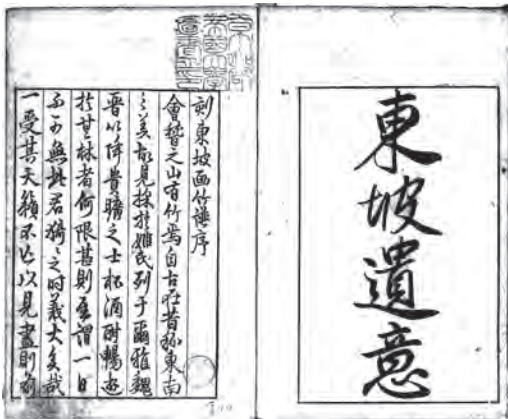 東坡遺意
刻東坡画竹譜序
會稽之山有竹焉自古在昔称東南
之美故見採於姚氏列于爾雅魏
晋以降貴瞻之士杯酒酣暢遊
於其林者何限甚則至謂一日
不可無此君猗々之時義大矣哉
一受其天籟不亡以見盡則